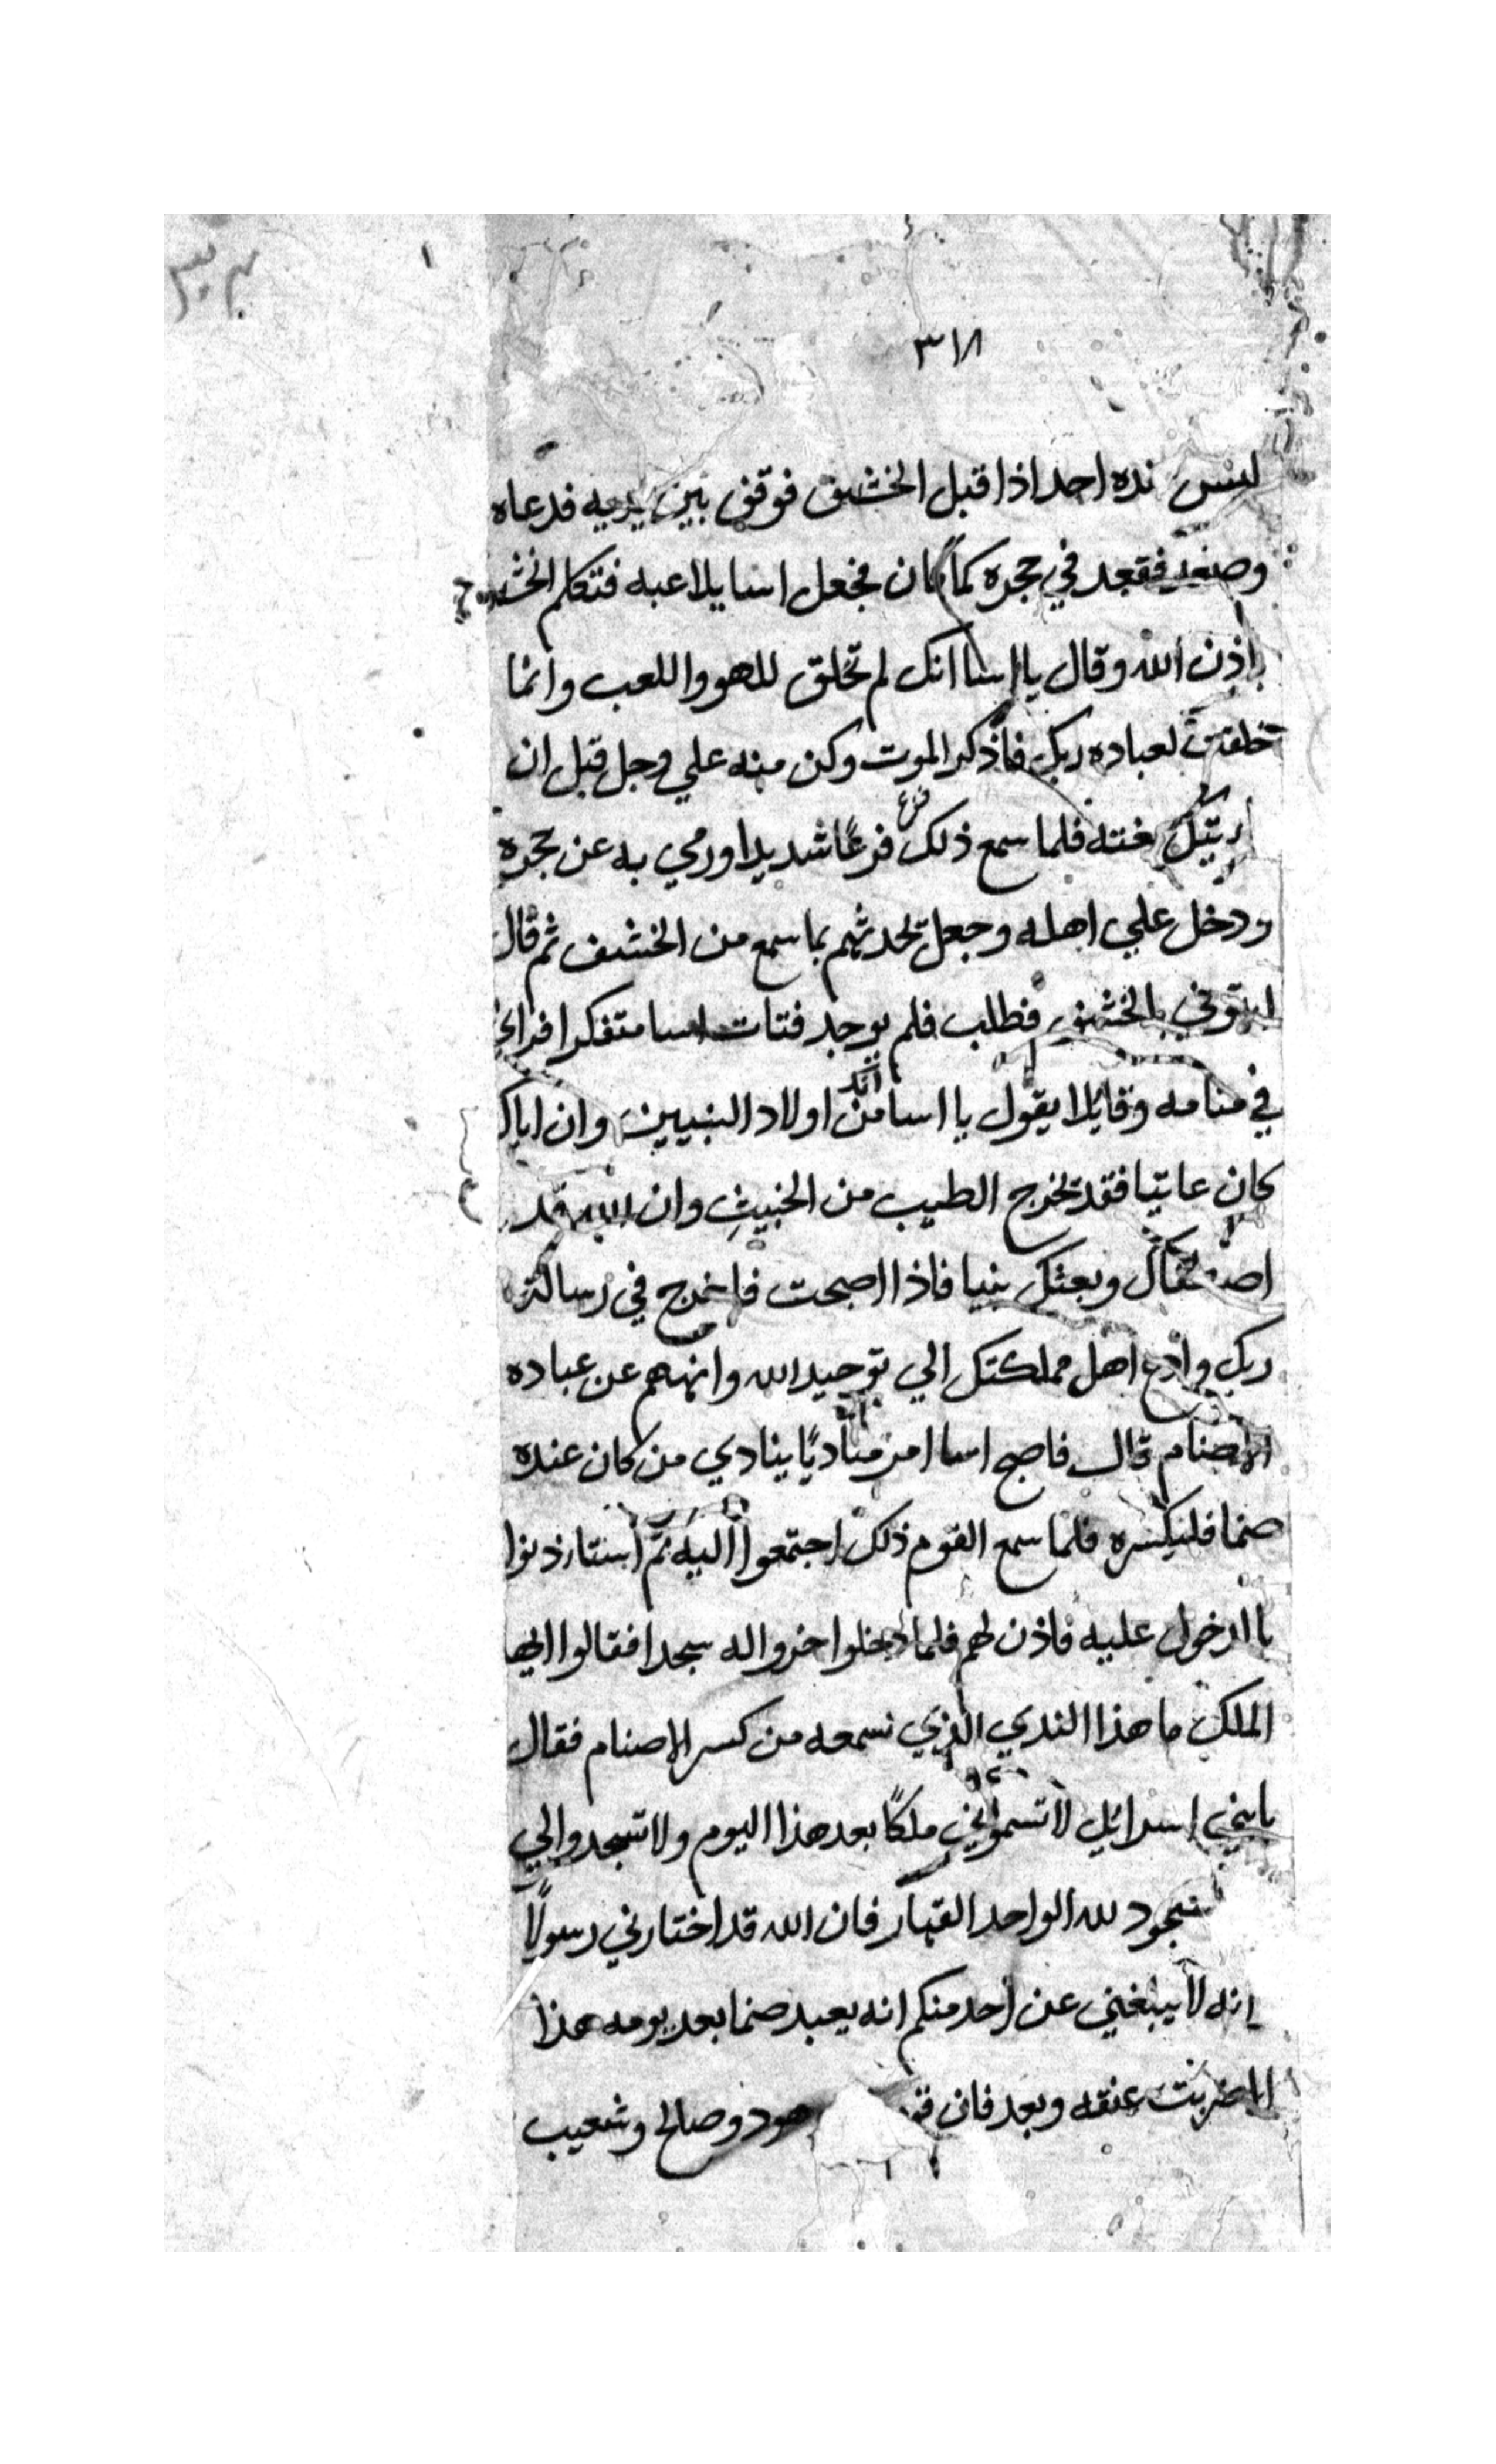 ٣١٨
ليس نده احد اذا قبل الخشف فوقف بين يديه فدعاه
فقعد في حجره كما كان فجعل اسا يلاعبه فتكلم الخشف
باذن الله وقال يا اسا انك لم تخلق للهو واللعب وانما
خلقت لعباده ربك فاذكر الموت وكن منه علي وجل قبل ان
بغته فلما سمع ذلك فزع فزعًا شديدا ورمي به عن حجره
ودخل علي اهله وجعل يحدثهم بما سمع من الخشف ثم قال
ايتوني بالخشف فطلب فلم يوجد فتات اسا متفكرا فراي
في منامه وقايلا يقول يا اسا انك من اولاد النبيين وان اباك
كان عاتيا فقد يخرج الطيب من الخبيث وان الله قد
وبعثك نبيا فاذا اصبحت فاخرج في رسالة
ربك وادع اهل مملكتك الي توحيد الله وانهم عن عباده
الاصنام قال فاصبح اسا امر مناديًا ينادي من كان عنده
صنما فليكسره فلما سمع القوم ذلك اجتمعوا اليه ثم استاذنوا
باالدخول عليه فاذن لهم فلما دخلوا خروا له سجدا فقالوا ايها
الملك ما هذا الندي الذي نسمعه من كسر الاصنام فقال
يابني اسرائيل لا تسموني ملكًا بعد هذا اليوم ولا تسجدوا لي
سجود لله الواحد القهار فان الله قد اختارني رسولًا
انه لا يبلغني عن احد منكم انه يعبد صنما بعد يومه هذا
الا ضربت عنقه وبعد فان هود وصالح وشعيب